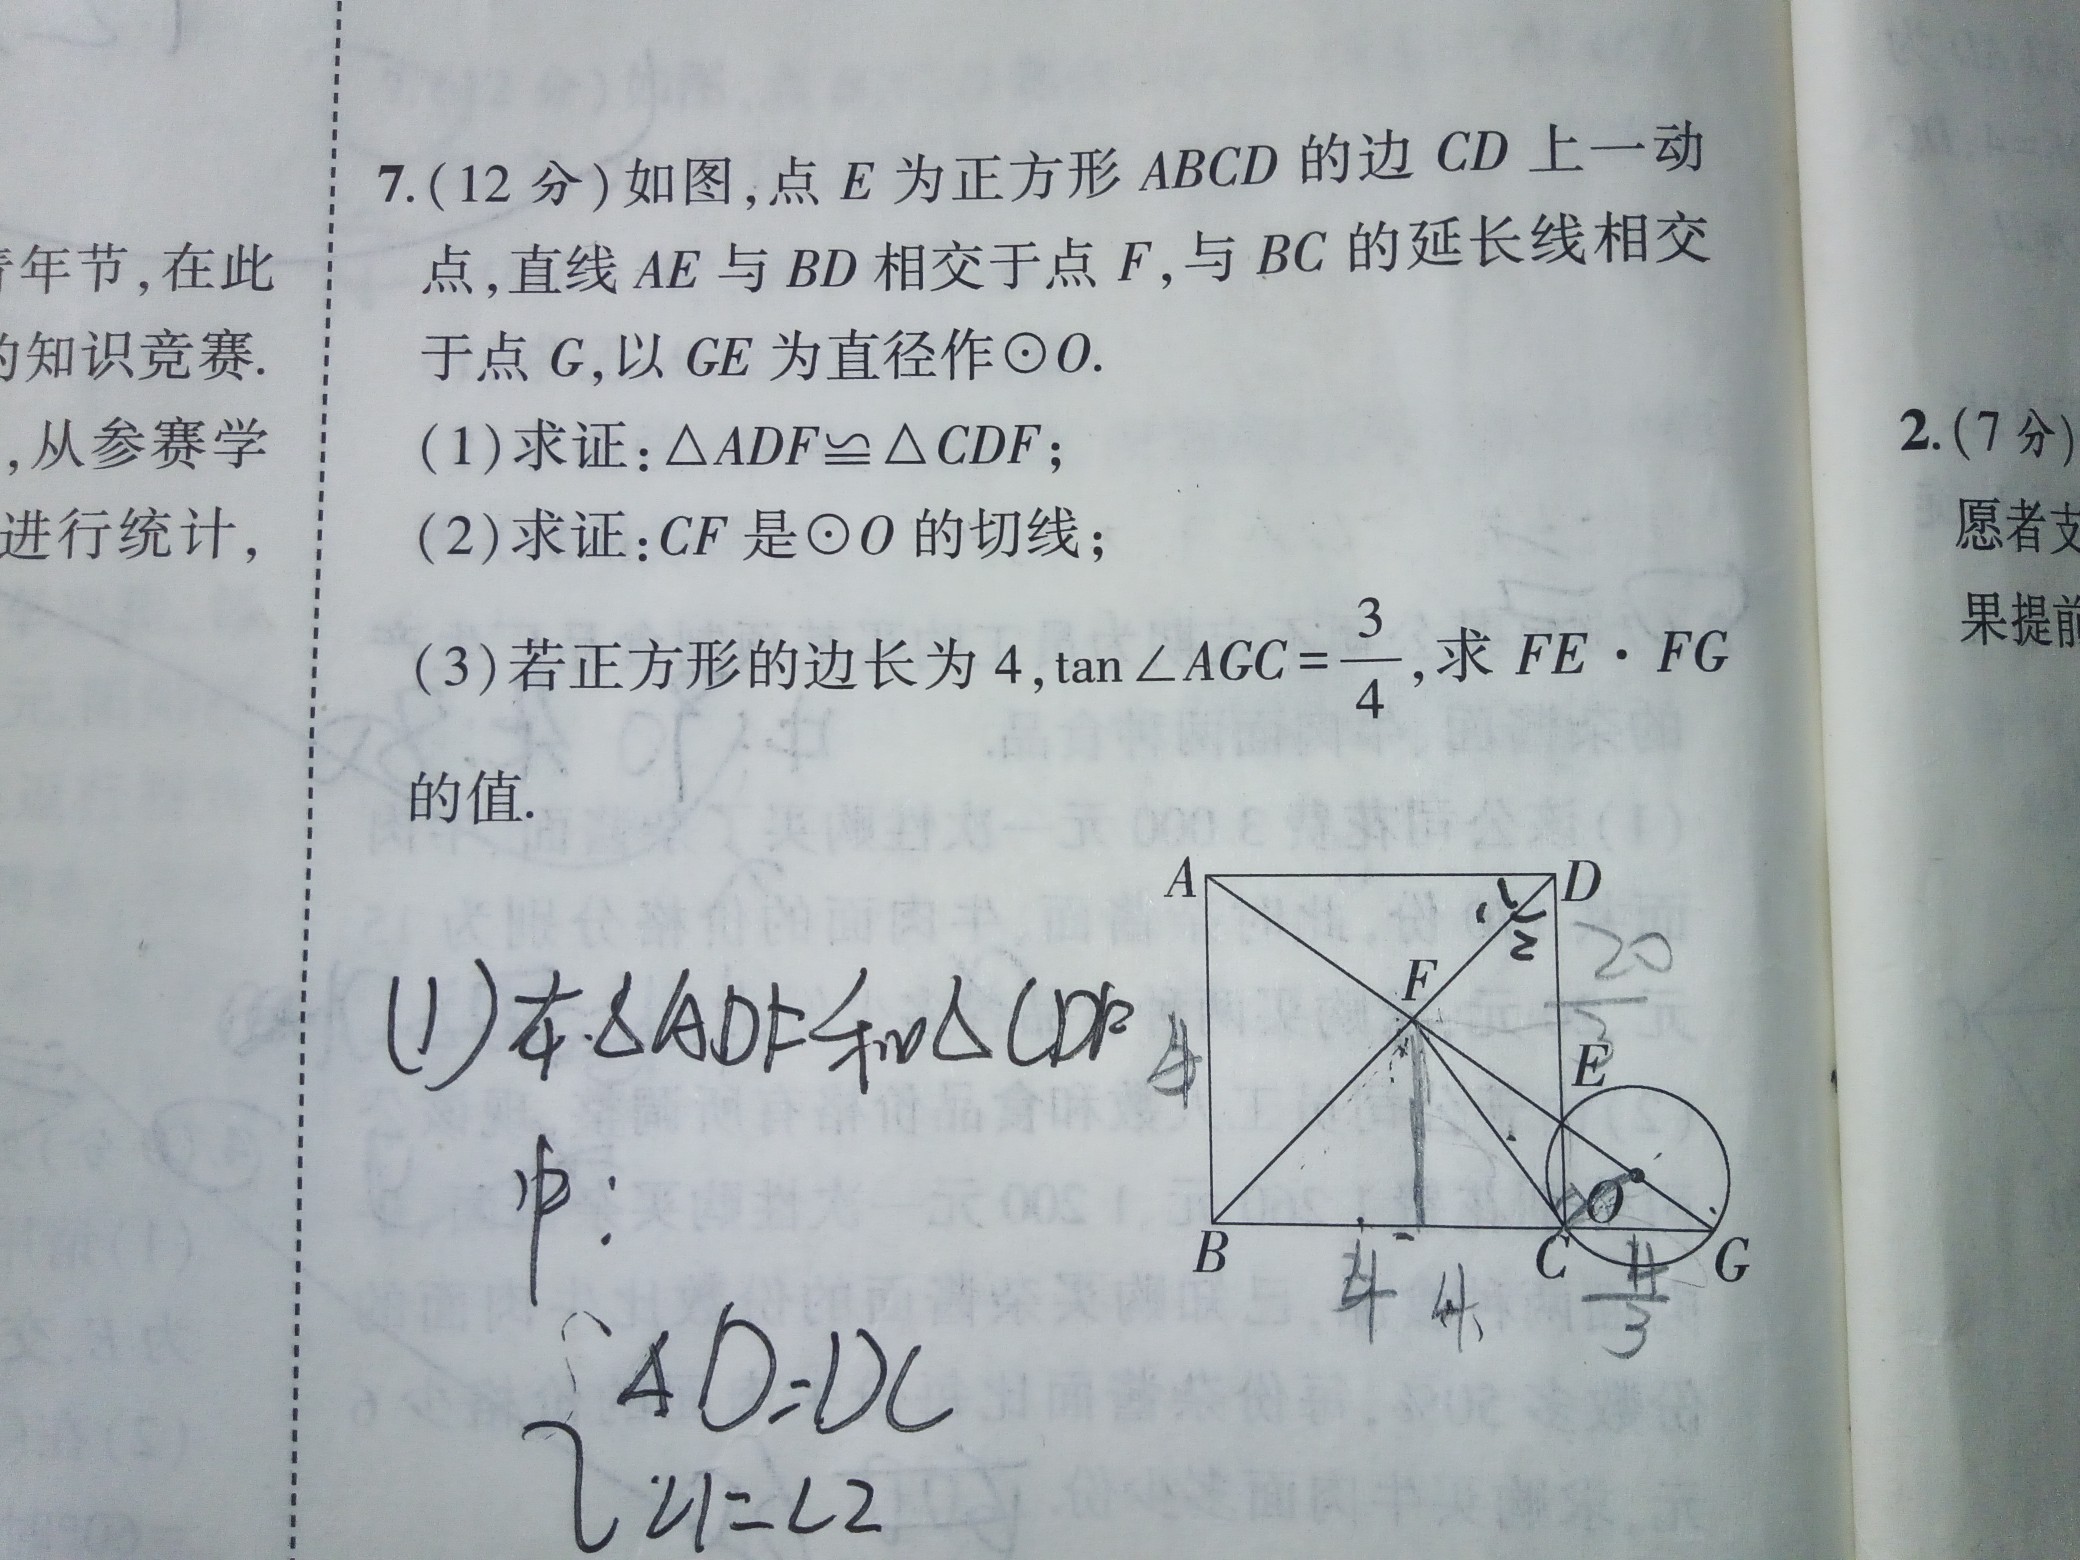 年节,在此
知识竞赛.
,从参赛学
进行统计,
7.(12 分)如图,点 E 为正方形 ABCD 的边 CD 上一动
点,直线 AE 与 BD 相交于点 F,与 BC 的延长线相交
于点 G,以 GE 为直径作⊙O.
(1)求证:△ADF≌△CDF;
(2)求证:CF 是⊙O 的切线;
(3)若正方形的边长为 4,tan∠AGC=3/4,求 FE·FG
的值.
A
D
1
2
20
3
F
4
E
O
B
C
G
4
4
4
3
(1)在△ADF和△CDF
中:
AD=DC
∠1=∠2
2.(7 分)
愿者支
果提前